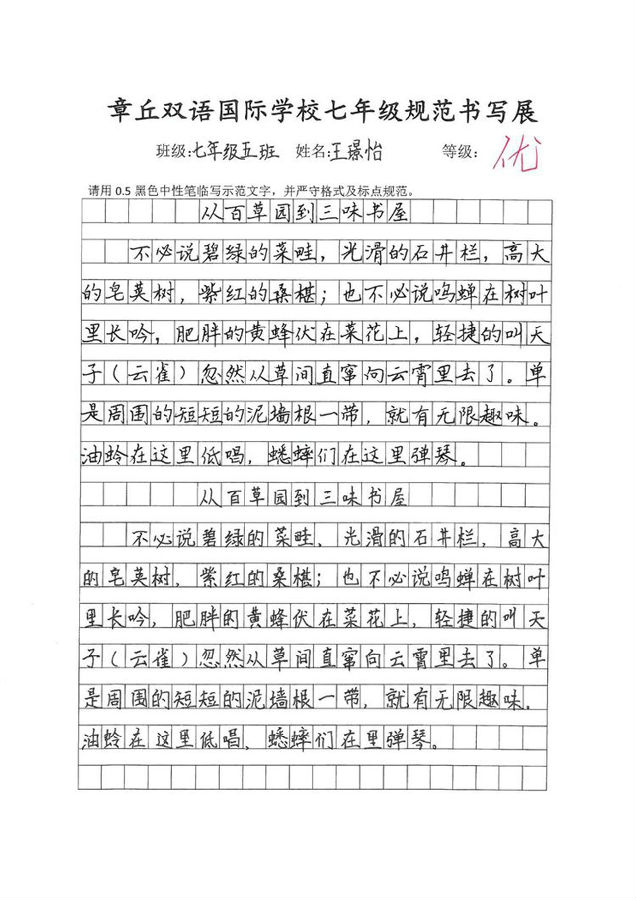 章丘双语国际学校七年级规范书写展
班级:七年级五班 姓名:王璟怡 等级: 优
请用 0.5 黑色中性笔临写示范文字，并严守格式及标点规范。
从百草园到三味书屋
不必说碧绿的菜畦，光滑的石井栏，高大
的皂荚树，紫红的桑椹；也不必说鸣蝉在树叶
里长吟，肥胖的黄蜂伏在菜花上，轻捷的叫天
子（云雀）忽然从草间直窜向云霄里去了。单
是周围的短短的泥墙根一带，就有无限趣味。
油蛉在这里低唱，蟋蟀们在这里弹琴。
从百草园到三味书屋
不必说碧绿的菜畦，光滑的石井栏，高大
的皂荚树，紫红的桑椹；也不必说鸣蝉在树叶
里长吟，肥胖的黄蜂伏在菜花上，轻捷的叫天
子（云雀）忽然从草间直窜向云霄里去了。单
是周围的短短的泥墙根一带，就有无限趣味.
油蛉在这里低唱，蟋蟀们在里弹琴。